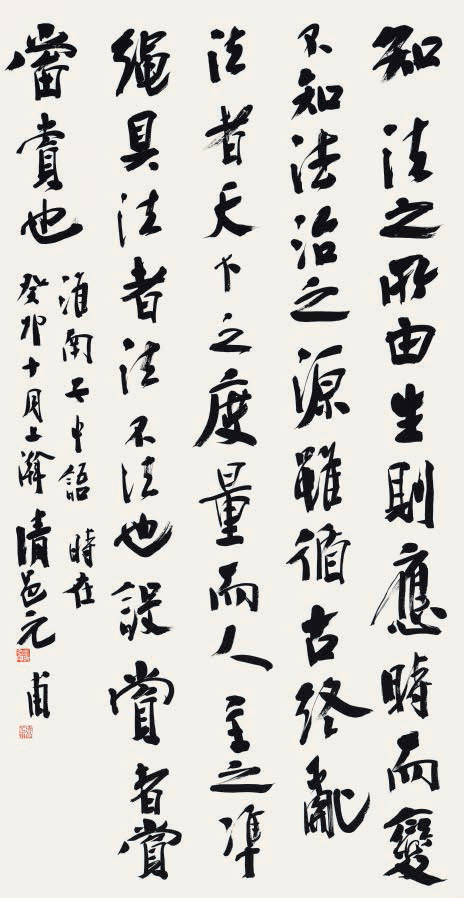 知法之所由生則應時而變
不知法治之源雖循古終亂
法者天下之度量而人主之準
繩具法者法不法也設賞者賞
當賞也
淮南子中語 時在
癸卯十月上澣清邑元甫